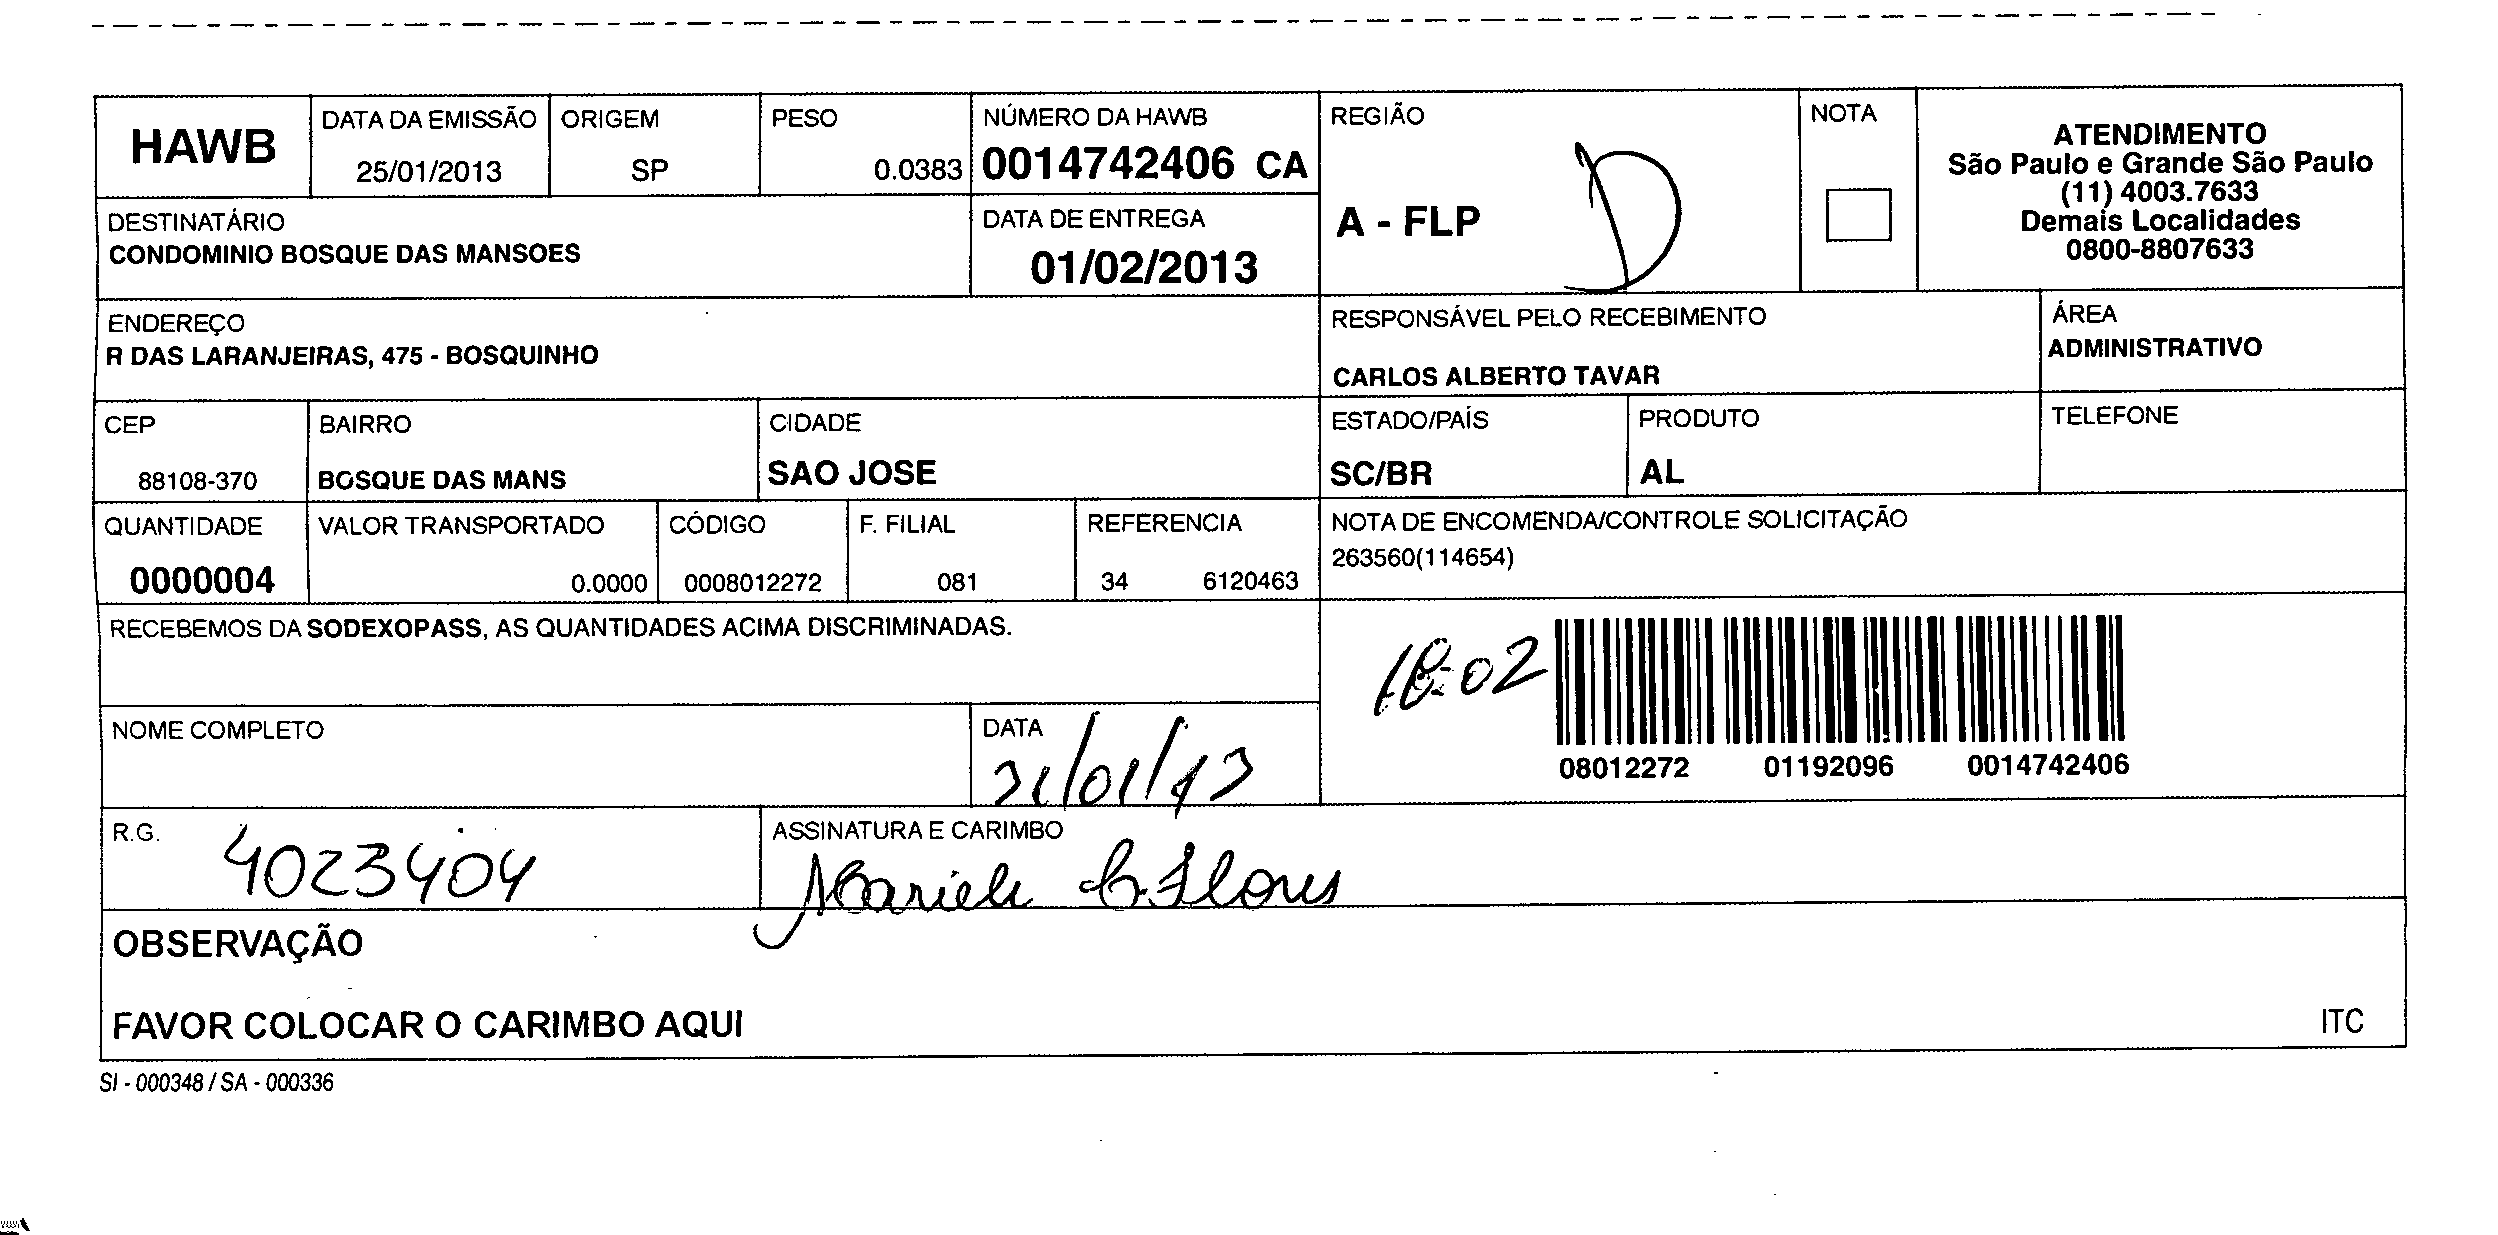 HAWB
DATA DA EMISSÃO
25/01/2013
ORIGEM
SP
PESO
0.0383
NÚMERO DA HAWB
0014742406 CA
REGIÃO
A - FLP
NOTA
ATENDIMENTO
São Paulo e Grande São Paulo
(11) 4003.7633
Demais Localidades
0800-8807633
DESTINATÁRIO
CONDOMINIO BOSQUE DAS MANSOES
DATA DE ENTREGA
01/02/2013
ENDEREÇO
R DAS LARANJEIRAS, 475 - BOSQUINHO
RESPONSÁVEL PELO RECEBIMENTO
CARLOS ALBERTO TAVAR
ÁREA
ADMINISTRATIVO
CEP
88108-370
BAIRRO
BOSQUE DAS MANS
CIDADE
SAO JOSE
ESTADO/PAÍS
SC/BR
PRODUTO
AL
TELEFONE
QUANTIDADE
0000004
VALOR TRANSPORTADO
0.0000
CÓDIGO
0008012272
F. FILIAL
081
REFERENCIA
34 6120463
NOTA DE ENCOMENDA/CONTROLE SOLICITAÇÃO
263560(114654)
RECEBEMOS DA SODEXOPASS, AS QUANTIDADES ACIMA DISCRIMINADAS.
08012272 01192096 0014742406
NOME COMPLETO
DATA
31/01/13
R.G.
4023404
ASSINATURA E CARIMBO
OBSERVAÇÃO
FAVOR COLOCAR O CARIMBO AQUI
ITC
SI - 000348 / SA - 000336